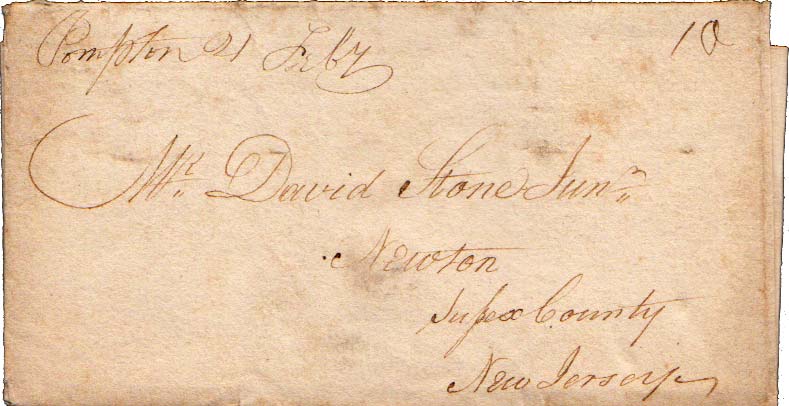 Pompton 21 Feby 10
Mr. David Stone Junr.
Newton
Sussex County
New Jersey